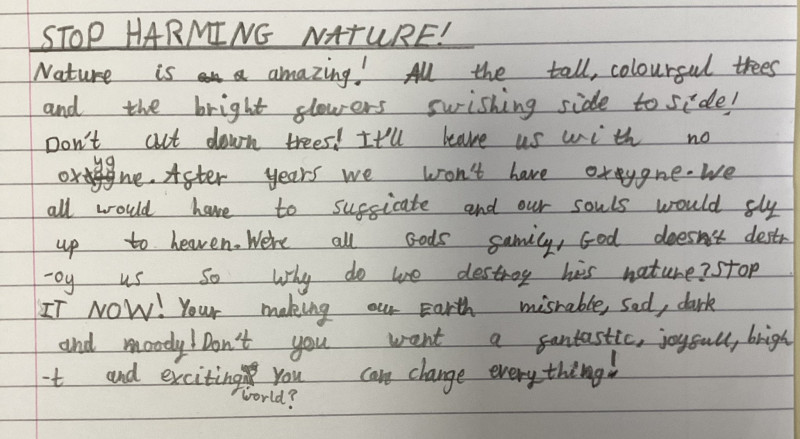 STOP HARMING NATURE!
Nature is a amazing! All the tall, colourful trees
and the bright flowers swishing side to side!
Don't cut down trees! It'll leave us with no
oxygne. After years we won't have oxygne. We
all would have to sufficate and our souls would fly
up to heaven. We're all Gods family, God doesn't destr
-oy us so why do we destroy his nature? STOP
IT NOW! Your making our Earth misrable, sad, dark
and moody! Don't you want a fantastic, joyfull, brigh
-t and exciting world? You can change everything!